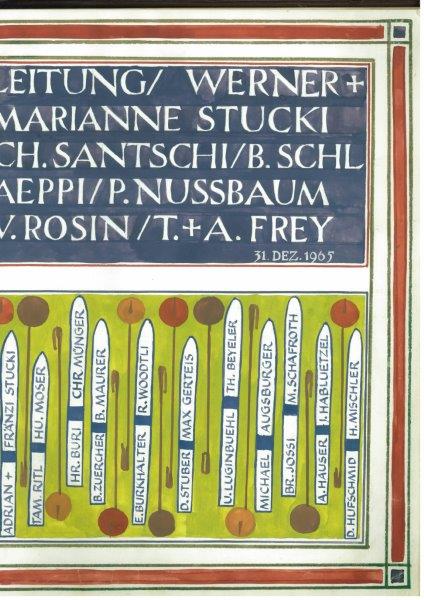 LEITUNG/ WERNER +
MARIANNE STUCKI
CH. SANTSCHI/B. SCHL
AEPPI/P. NUSSBAUM
V. ROSIN/T.+A. FREY
31. DEZ. 1965
ADRIAN + FRÄNZI STUCKI
TAM. RITL HU. MOSER
HR. BURI CHR. MÜNGER
B. ZUERCHER B. MAURER
E. BURKHALTER R. WOODTLI
D. STUBER MAX GERTEIS
U. LUGINBUEHL TH. BEYELER
MICHAEL AUGSBURGER
BR. JOSSI M. SCHAFROTH
A. HAUSER I. HABLUETZEL
D. HUFSCHMID H. MISCHLER